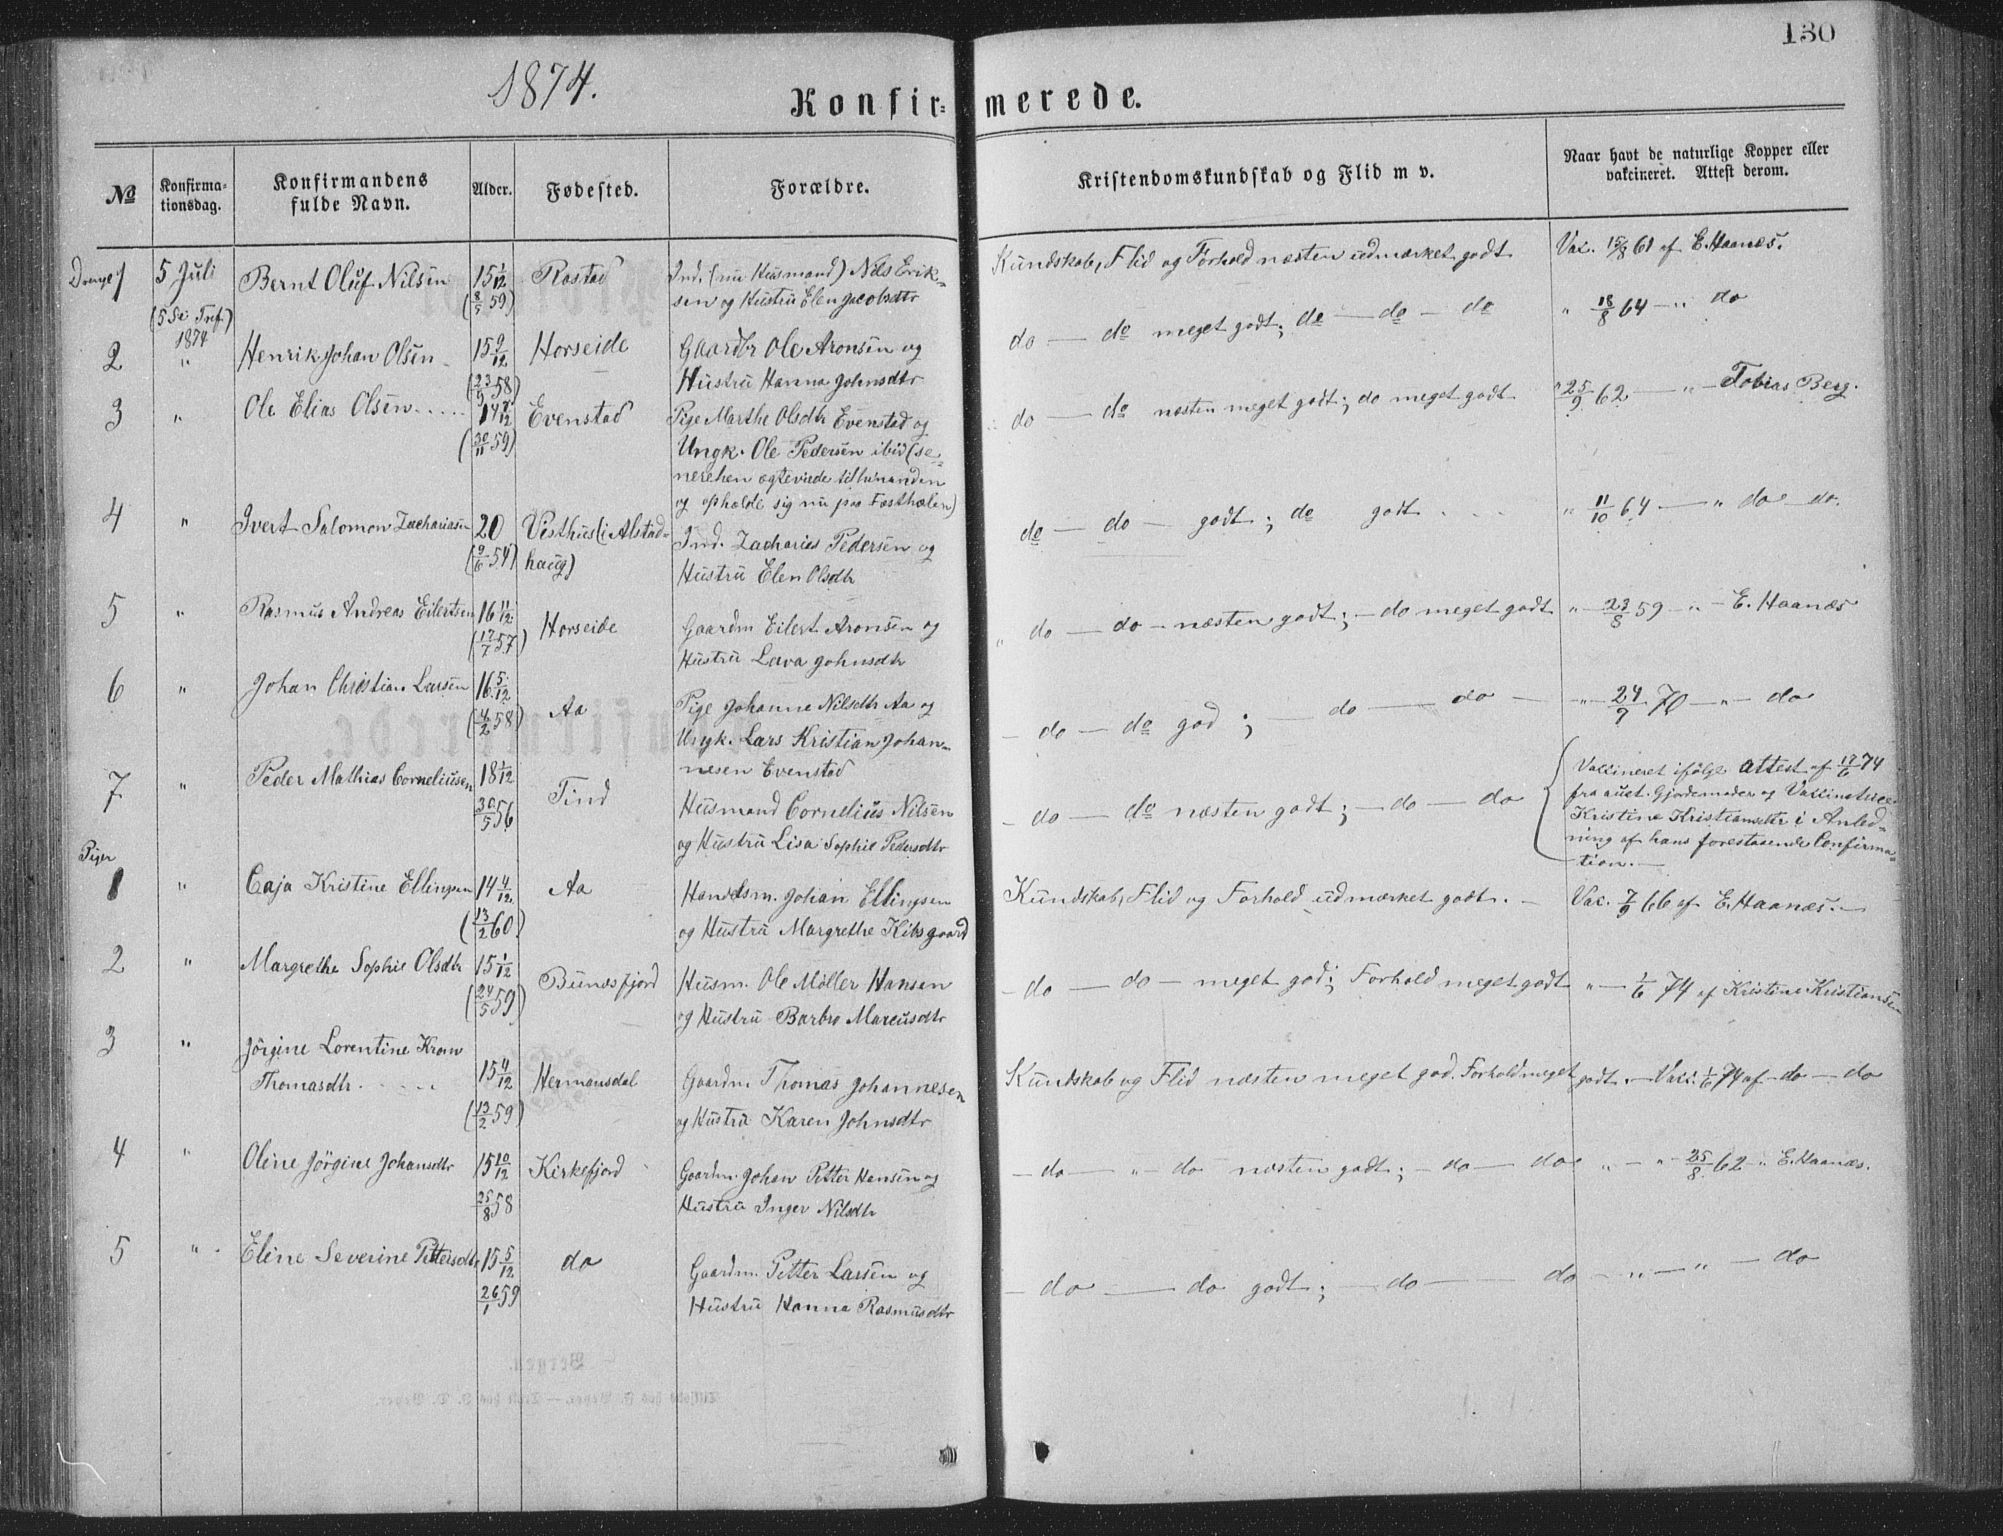 130
1874.
Konfir- merede.
№
Konfirma-
tionsdag.
Konfirmandens
fulde Navn.
Alder.
Fødested.
Forældre.
Kristendomskundskab og Flid m v.
Naar havt de naturlige Kopper eller
vakcineret. Attest derom.
Drenge 1
5 Juli
(5 Sø: Tref.)
1874
Bernt Oluf Nilsen
15 1/12
(8/5 59)
Rostad
Ind. (nu Husmand) Nils Erik-
sen og Hustru Elen Jacobsdtr
Kundskab, Flid og Forhold næsten udmærket godt
Vac. 15/8 61 af E. Haanæs.
2
"
Henrik Johan Olsen
15 9/12
(23/9 58)
Horseide
Gaardbr Ole Aronsen og
Hustru Hanna Johnsdtr
do — do meget godt; do — do — do
" 18/8 64 — " do
3
"
Ole Elias Olsen . . . . .
14 7/12
(30/11 59)
Evenstad
Pige Marthe Olsdtr Evenstad og
Ungk. Ole Pedersen ibid (se-
nerehen ægteviede tilhinanden
og opholde sig nu paa Festhælen)
do — do næsten meget godt; do meget godt
" 25/9 62 — " — Tobias Berg.
4
"
Ivert Salomon Zachariasen
20
(9/6 54)
Vesthus (i Alstad-
haug)
Ind. Zacharias Pedersen og
Hustru Elen Olsdtr
do — do — godt; do godt . . .
" 11/10 64 — " do do.
5
"
Rasmus Andreas Eilertsen
16 11/12
(17/7 57)
Horseide
Gaardm Eilert Aronsen og
Hustru Lava Johnsdtr
" do — do — næsten godt; — do meget godt
" 23/8 59 — " — E. Haanæs
6
"
Johan Christian Larsen
16 5/12
(4/2 58)
Aa
Pige Johanne Nilsdtr Aa og
Ungk. Lars Kristian Johan-
nesen Evenstad
— do — do god; — do — do —
" — 24/9 70 — " — do
7
"
Peder Mathias Corneliusen
18 1/12
30/5 56
Tind
Husmand Cornelius Nilsen
og Hustru Lisa Sophie Pedersdtr
— do — do næsten godt; — do — do
Vaccineret ifølge attest af 17/6 74
fra aut. Gjordemoder og Vaccinatrice
Kristine Kristiansdtr i Anled-
ning af hans forestaaende Confirma-
tion. —
Piger
1
"
Caja Kristine Ellingsen
14 4/12
(13/2 60)
Aa
Handelsm. Johan Ellingsen
og Hustru Margrethe Kibsgaard
Kundskab, Flid og Forhold udmærket godt. —
Vac. 7/9 66 af E. Haanæs. —
2
"
Margrethe Sophie Olsdtr
15 1/12
(24/5 59)
Bunesfjord
Husm. Ole Møller Hansen
og Hustru Barbro Marcusdtr
— do — do — meget god; Forhold meget godt
" — 1/6 74 af Kristine Kristiansen
3
"
Jörgine Lorentine Kron
Thomasdtr. . . . . .
15 4/12
(13/2 59)
Hermansdal
Gaardm Thomas Johannesen
og Hustru Karen Johnsdtr
Kundskab og Flid næsten meget god. Forhold meget godt. —
Vacc. 1/6 74 af — do — do
4
"
Oline Jörgine Johansdtr
15 10/12
25/8 58
Kirkefjord
Gaardm. Johan Petter Hansen og
Hustru Inger Nilsdtr
— do — " — do næsten godt; — do — do
" — " — 25/8 62 " E. Haanæs.
5
"
Eline Severine Pettersdtr
15 5/12
26/1 59
do
Gaardm. Petter Larsen og
Hustru Hanna Rasmusdtr
— do — do godt; — do — do
— " — " — do